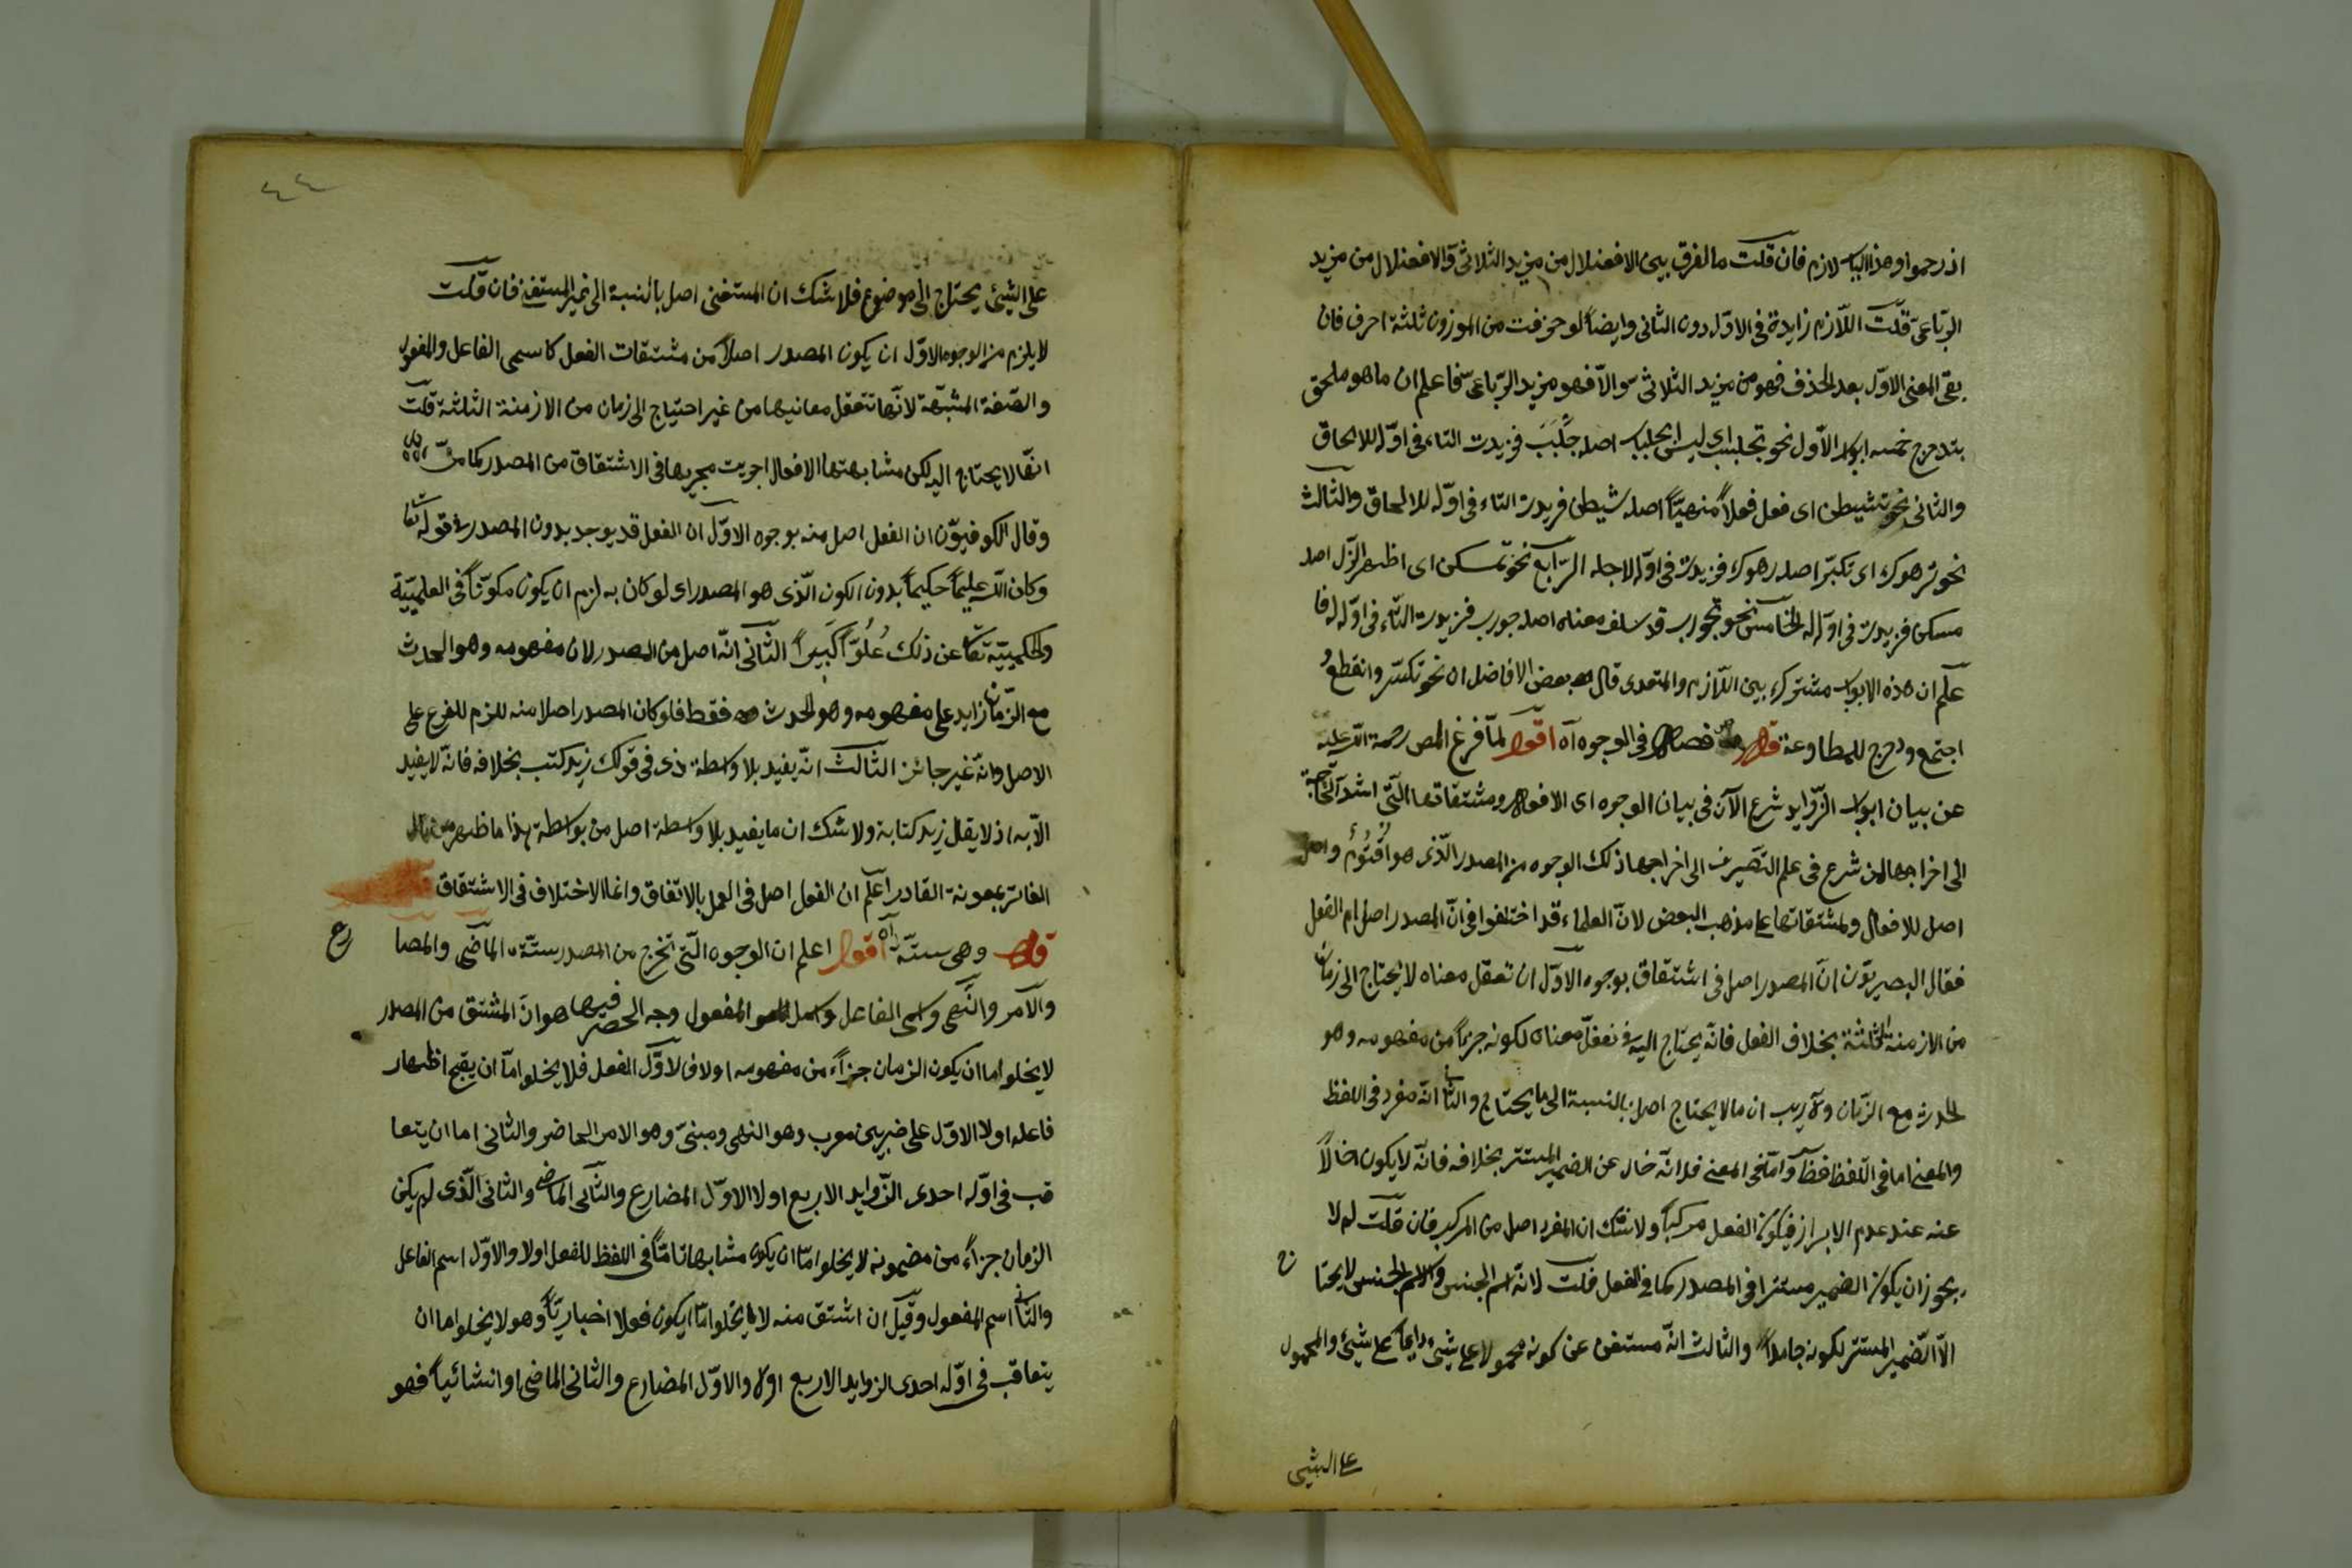 اذ رحموا وهذا الباب لازم فان قلت ما الفرق بين الافعنلال من مزيد الثلاثى والافعنلال من مزيد
الرباعى قلت اللازم زايدة فى الاول دون الثانى وايضا لو حذفت من الموزون ثلثة احرف فان
بقى المعنى الاول بعد الحذف فهو من مزيد الثلاثى والا فهو مزيد الرباعى فاعلم ان ما هو ملحق
بتدحرج خمسه ابواب الاول نحو تجلبب اى لبس الجلباب اصله جلبب فزيدت التاء فى اوله للالحاق
والثانى نحو تشيطن اى فعل فعلا منهيا اصله شيطن فزيدت التاء فى اوله للالحاق والثالث
نحو ترهوك اى تكبر اصله رهوك فزيدت فى اوله لاجله الرابع نحو تمسكن اى اظهر الذل اصله
مسكن فزيدت فى اوله له الخامس نحو تجورب قد سلف معناه اصله جورب فزيدت التاء فى اوله له فا
علم ان هذه الابواب مشتركة بين اللازم والمتعدى قال بعض الافاضل ان نحو تكسر وانقطع
اجتمع ودحرج للمطاوعة قال فصل فى الوجوه آه اقول لما فرغ المص رحمة الله عليه
عن بيان ابواب الزوايد شرع الآن فى بيان الوجوه اى الافعال ومشتقاتها التى اشد الحاجة
الى اخراجها لمن شرع فى علم التصريف الى اخراجها ذلك الوجوه من المصدر الذى هو
اصل للافعال ولمشتقاتها على مذهب البعض لان العلماء قد اختلفوا فى ان المصدر اصل ام الفعل
فقال البصريون ان المصدر اصل فى اشتقاق بوجوه الاول ان تعقل معناه لا يحتاج الى زمان
من الازمنة الثلثة بخلاف الفعل فانه يحتاج اليه فى تعقل معناه لكونه جزءا من مفهومه وهو
الحدث مع الزمان ولا ريب ان ما لا يحتاج اصل بالنسبة الى ما يحتاج والثانى انه مفرد فى اللفظ
والمعنى اما فى اللفظ فظ واما فى المعنى فلانه خال عن الضمير المستتر بخلافه فانه لا يكون خاليا
عنه عند عدم الابراز فيكون الفعل مركبا ولا شك ان المفرد اصل من المركب فان قلت لم لا
يجوز ان يكون الضمير مستترا فى المصدر كما فى الفعل قلت لانه اسم الجنس والاسم الجنس لا يحتا ج
الا الضمير المستتر لكونه جامدا والثالث انه مستغن عن كونه محمولا على شئ دايما على شئ والمحمول
على الشئ
٤٤
على الشئ يحتاج الى موضوع فلا شك ان المستغنى اصل بالنسبة الى غير المستغنى فان قلت
لا يلزم من الوجوه الاول ان يكون المصدر اصلا من مشتقات الفعل كاسمى الفاعل والمفعول
والصفة المشبهة لانها تتعقل معانيها من غير احتياج الى زمان من الازمنة الثلثة قلت
انها لا يحتاج اليه لكن مشابهتها الافعال اجريت مجريها فى الاشتقاق من المصدر كما مر
وقال الكوفيون ان الفعل اصل منه بوجوه الاول ان الفعل قد يوجد بدون المصدر فى قوله تعا
وكان الله عليما حكيما بدون الكون الذى هو المصدر اى لو كان به لزم ان يكون مكونا فى العليمية
والحكيمية تعا عن ذلك علوا كبيرا الثانى انه اصل من المصدر لان مفهومه وهو الحدث
مع الزمان زايد على مفهومه وهو الحدث فقط فلو كان المصدر اصلا منه للزم للفرع على
الاصل وانه غير جائز الثالث انه يفيد بلا واسطة ذى فى قولك زيد كتب بخلافه فانه لا يفيد
الا به اذ لا يقال زيد كتابة ولا شك ان ما يفيد بلا واسطة اصل من بواسطة هذا ما ظهر
الفاتر بمعونة القادر اعلم ان الفعل اصل فى العمل بالاتفاق وانما الاختلاف فى الاشتقاق
قال وهى ستة آه اقول اعلم ان الوجوه التى تخرج من المصدر ستة الماضى والمضا رع
والامر والنهى واسمى الفاعل والمفعول وجه الحصر فيها هو ان المشتق من المصدر
لا يخلو اما ان يكون الزمان جزاء من مفهومه او لا فالاول الفعل فلا يخلو اما ان يقبح اظهار
فاعله اولا الاول على ضربين معرب وهو النهى ومبنى وهو الامر الحاضر والثانى اما ان يتعا
قب فى اوله احدى الزوايد الاربع اولا الاول المضارع والثانى الماضى والثانى الذى لم يكن
الزمان جزاء من مضمونه لا يخلو اما ان يكون مشابها تاما فى اللفظ للفعل اولا والاول اسم الفاعل
والثانى اسم المفعول وقيل ان اشتق منه لا يخلو اما يكون فعلا اخباريا وهو لا يخلو اما ان
يتعاقب فى اوله احدى الزوايد الاربع اولا والاول المضارع والثانى الماضى او انشائيا فهو